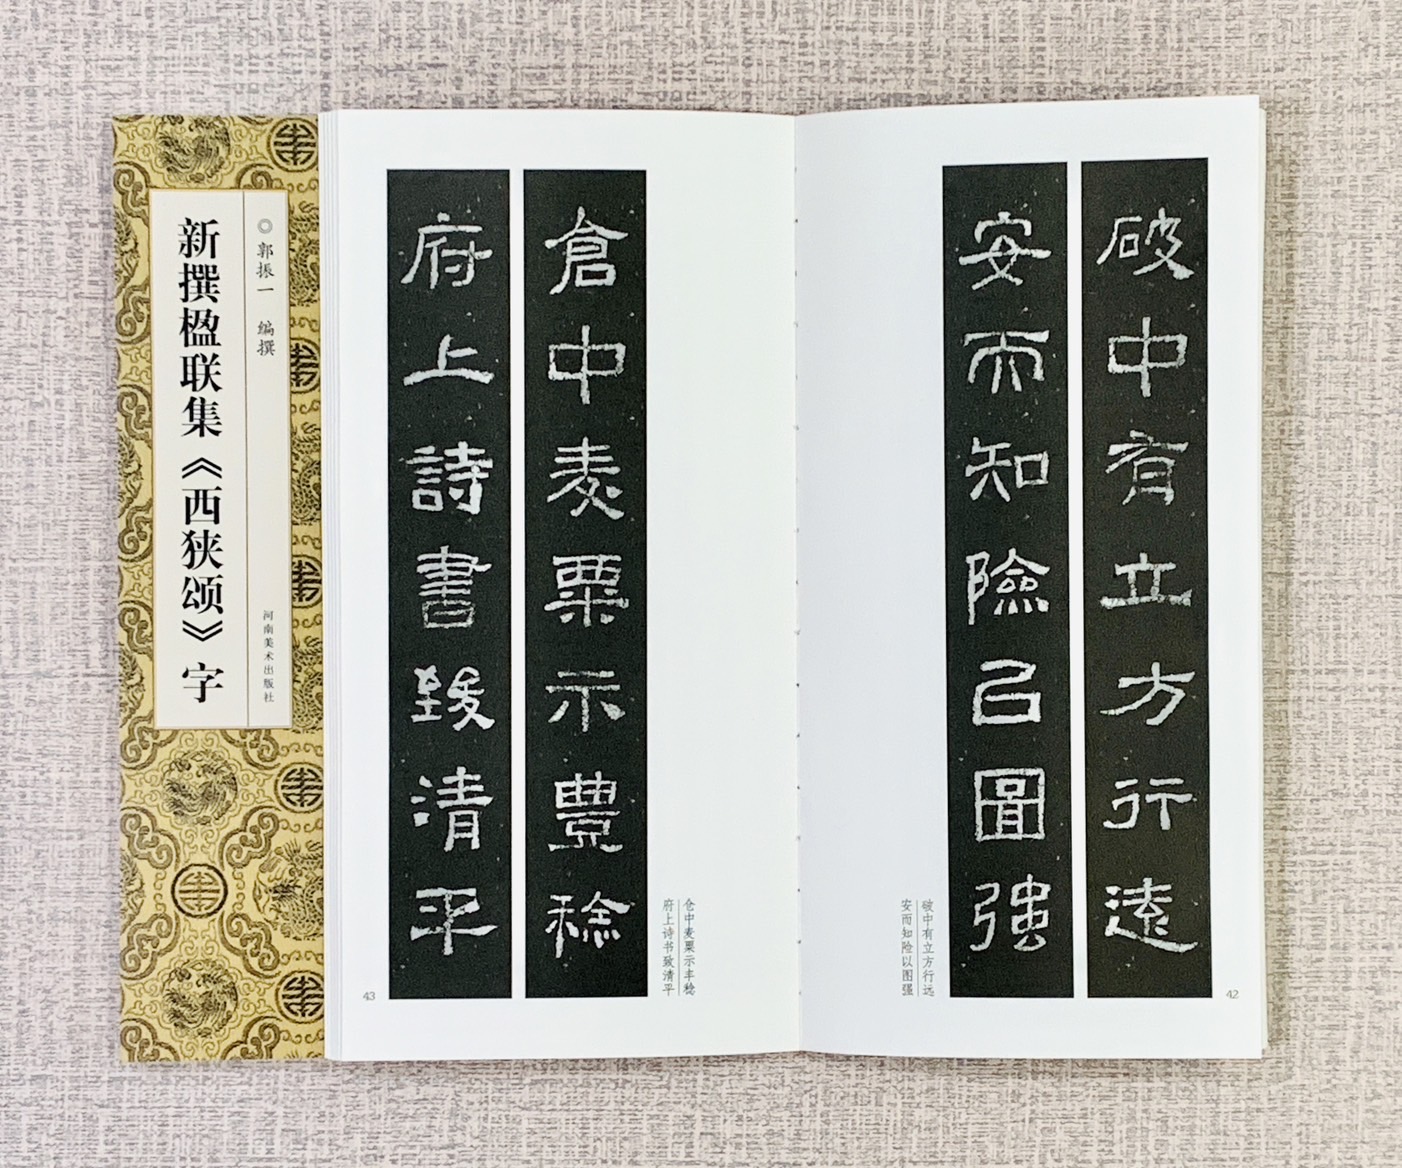 新撰楹联集《西狭颂》字
◎郭振一 编撰
河南美术出版社
破中有立方行遠
安而知險㠯圖強
破中有立方行远
安而知险以图强
42
倉中麦粟示豐稔
府上詩書致清平
仓中麦粟示丰稔
府上诗书致清平
43